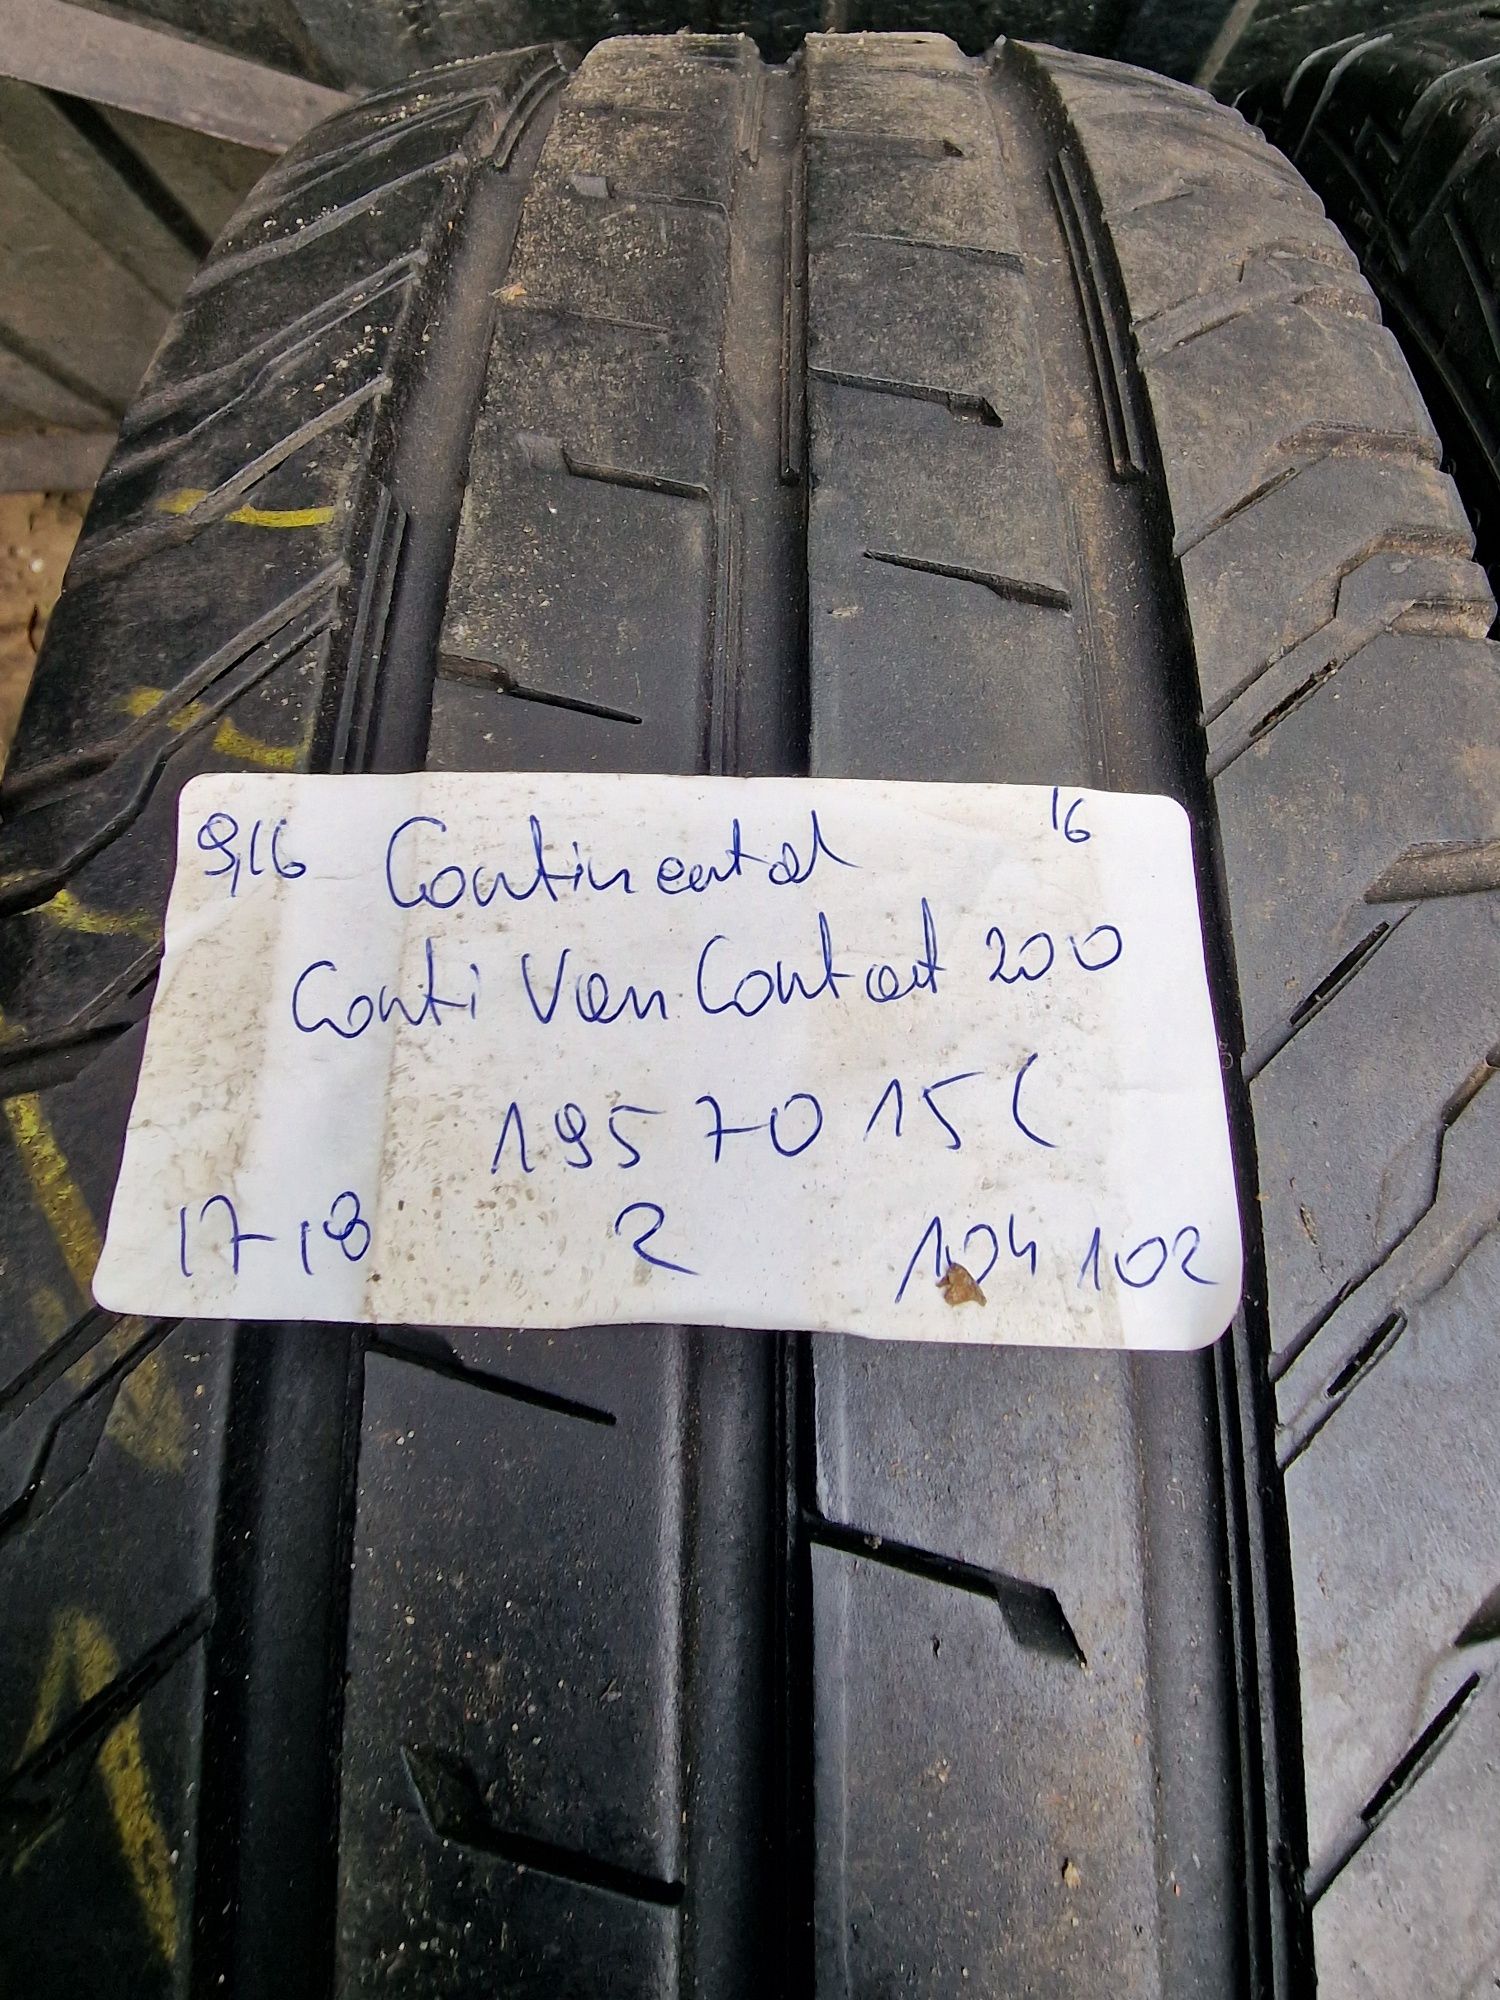 9,16 Continental 16
Conti Van Contact 200
195 70 15 C
17-18 2 104 102